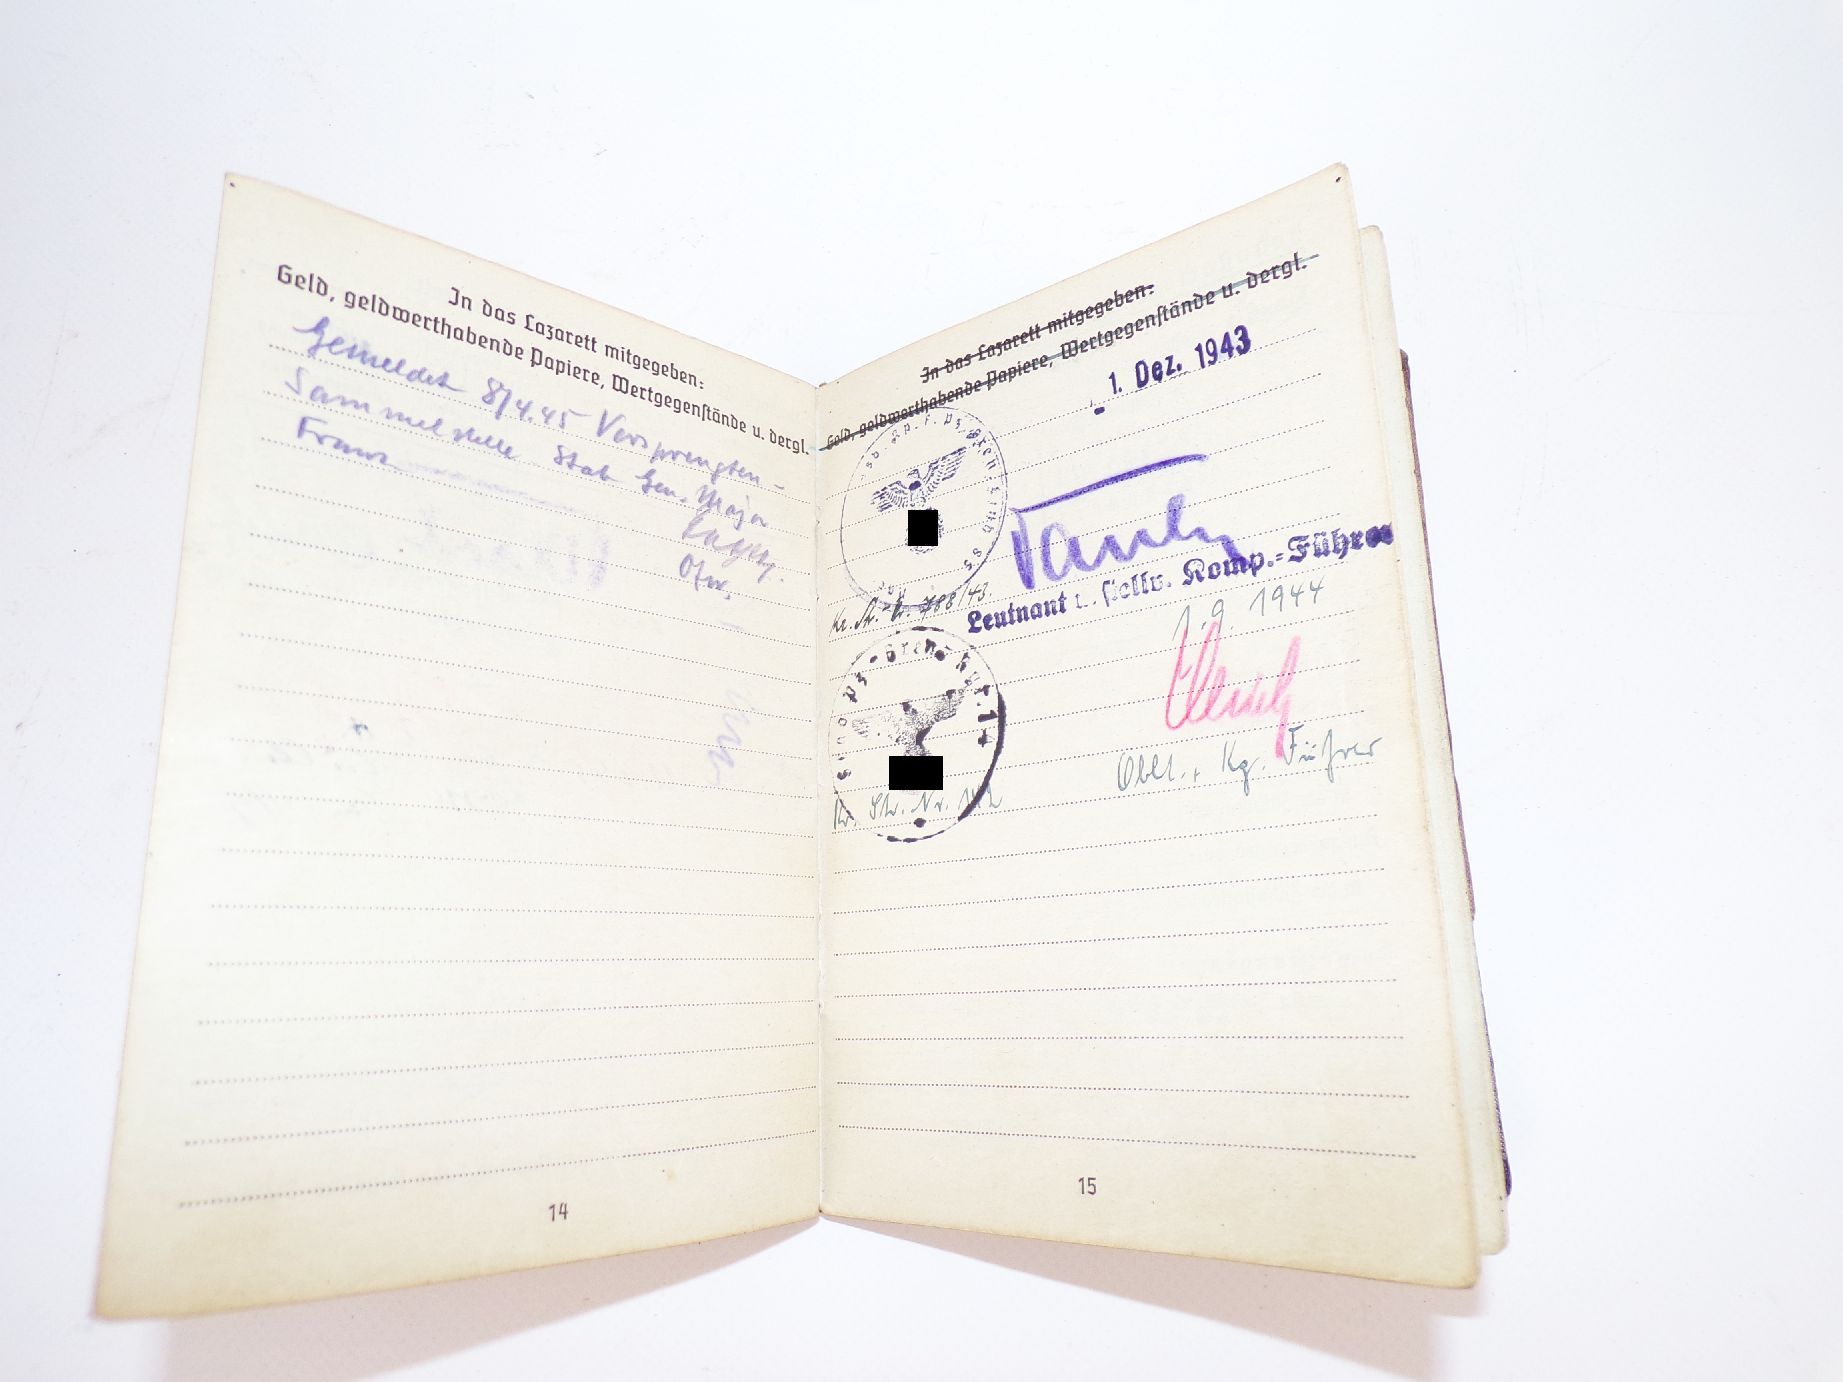 In das Lazarett mitgegeben:
Geld, geldwerthabende Papiere, Wertgegenstände u. dergl.
Gemeldet 8/4.45 Versprengten-
Sammelstelle Stab Gen. Major
Ofw.
14
In das Lazarett mitgegeben:
Geld, geldwerthabende Papiere, Wertgegenstände u. dergl.
1. Dez. 1943
788/43.
Leutnant u. stellv. Komp.-Führer
1.9.1944
Oblt., Kg. Führer
Kr. Str. Nr.
15